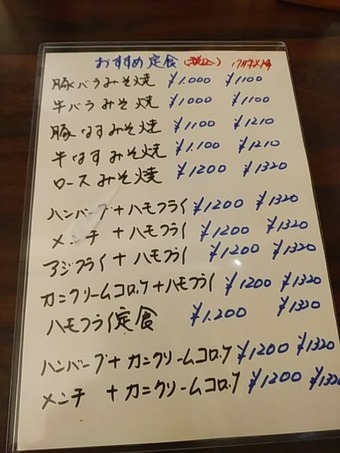 おすすめ定食 (税込)
豚バラみそ焼 ¥1.000 ¥1100
牛バラみそ焼 ¥1.000 ¥1100
豚なすみそ焼 ¥1.100 ¥1210
牛なすみそ焼 ¥1.100 ¥1210
ロースみそ焼 ¥1200 ¥1320
ハンバーグ+ハモフライ ¥1200 ¥1320
メンチ+ハモフライ ¥1200 ¥1320
アジフライ+ハモフライ ¥1200 ¥1320
カニクリームコロッケ+ハモフライ ¥1200 ¥1320
ハモフライ定食 ¥1.200 ¥1320
ハンバーグ+カニクリームコロッケ ¥1200 ¥1320
メンチ+カニクリームコロッケ ¥1200 ¥1320